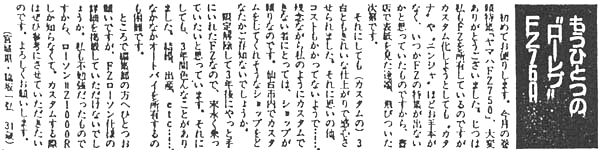 もうひとつの
"ローレプ"
FZ750R
初めてお便りします。今月の巻
頭特集"ヤマハFZ750"、大変
ありがとうございました。じつは
私もFZを所有しているのですが
カスタム化しようとしても、"カタ
ナ"や"ニンジャ"ほどお手本が
なく、いつかFZの特集が出ない
かと思っていたものですから、書
店で表紙を見た途端、飛びついた
次第です。
それにしても(カスタムの)3
台ともきれいな仕上がりで感心さ
せられました。それに思いの他、
コストもかかってないようで……
残念ながら私のようにカスタムで
きない者にとっては、ショップが
です。仙台市内でカスタ
ムをしてくれそうなショップをど
なたかご存知ないでしょうか。
限定解除して3年後にやっと手
にいれたFZなので、末永く乗っ
ていたいと思っています。それに
も、3年間色んなことがあり
ました。結婚、出産、etc……
なかなかオートバイを所有するの
も困難です。
ところで編集部の方へひとつお
願いですが、FZローソン仕様の
詳細を掲載していただけないでし
ょうか。私も不勉強だったもので
すから、ローソン=Z1000R
しか知らなくて、カスタムする際
はぜひ参考にさせていただきたい
のです。よろしくお願いします。
(宮城県・脇坂一弘 31歳)